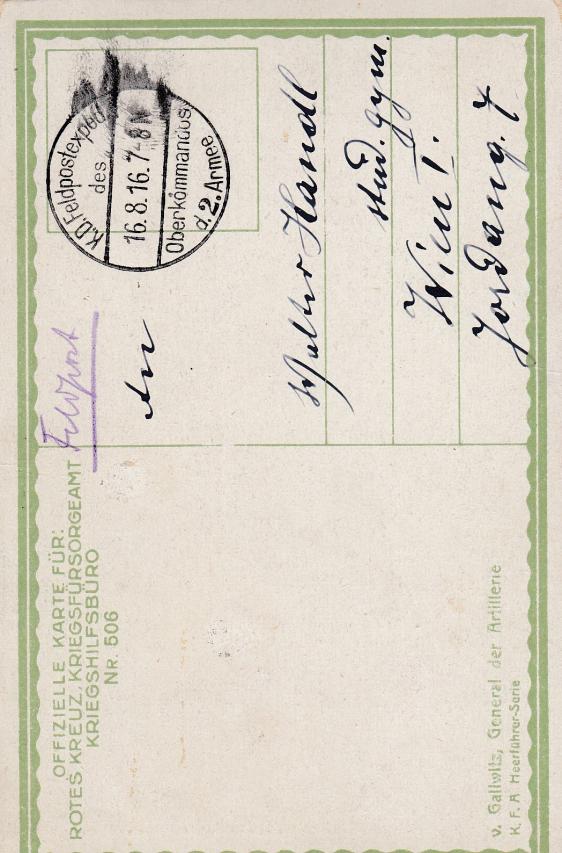 OFFIZIELLE KARTE FÜR:
ROTES KREUZ, KRIEGSFÜRSORGEAMT
KRIEGSHILFSBÜRO
NR. 506
Feldpost
K.u.K. Feldpostexped.
des
16.8.16.7-8
Oberkommandos
d. 2. Armee
An
Walter Handl
stud. gym.
Wien I.
Jordang. 7
v. Gallwitz, General der Artillerie
K. F. A Heerführer-Serie